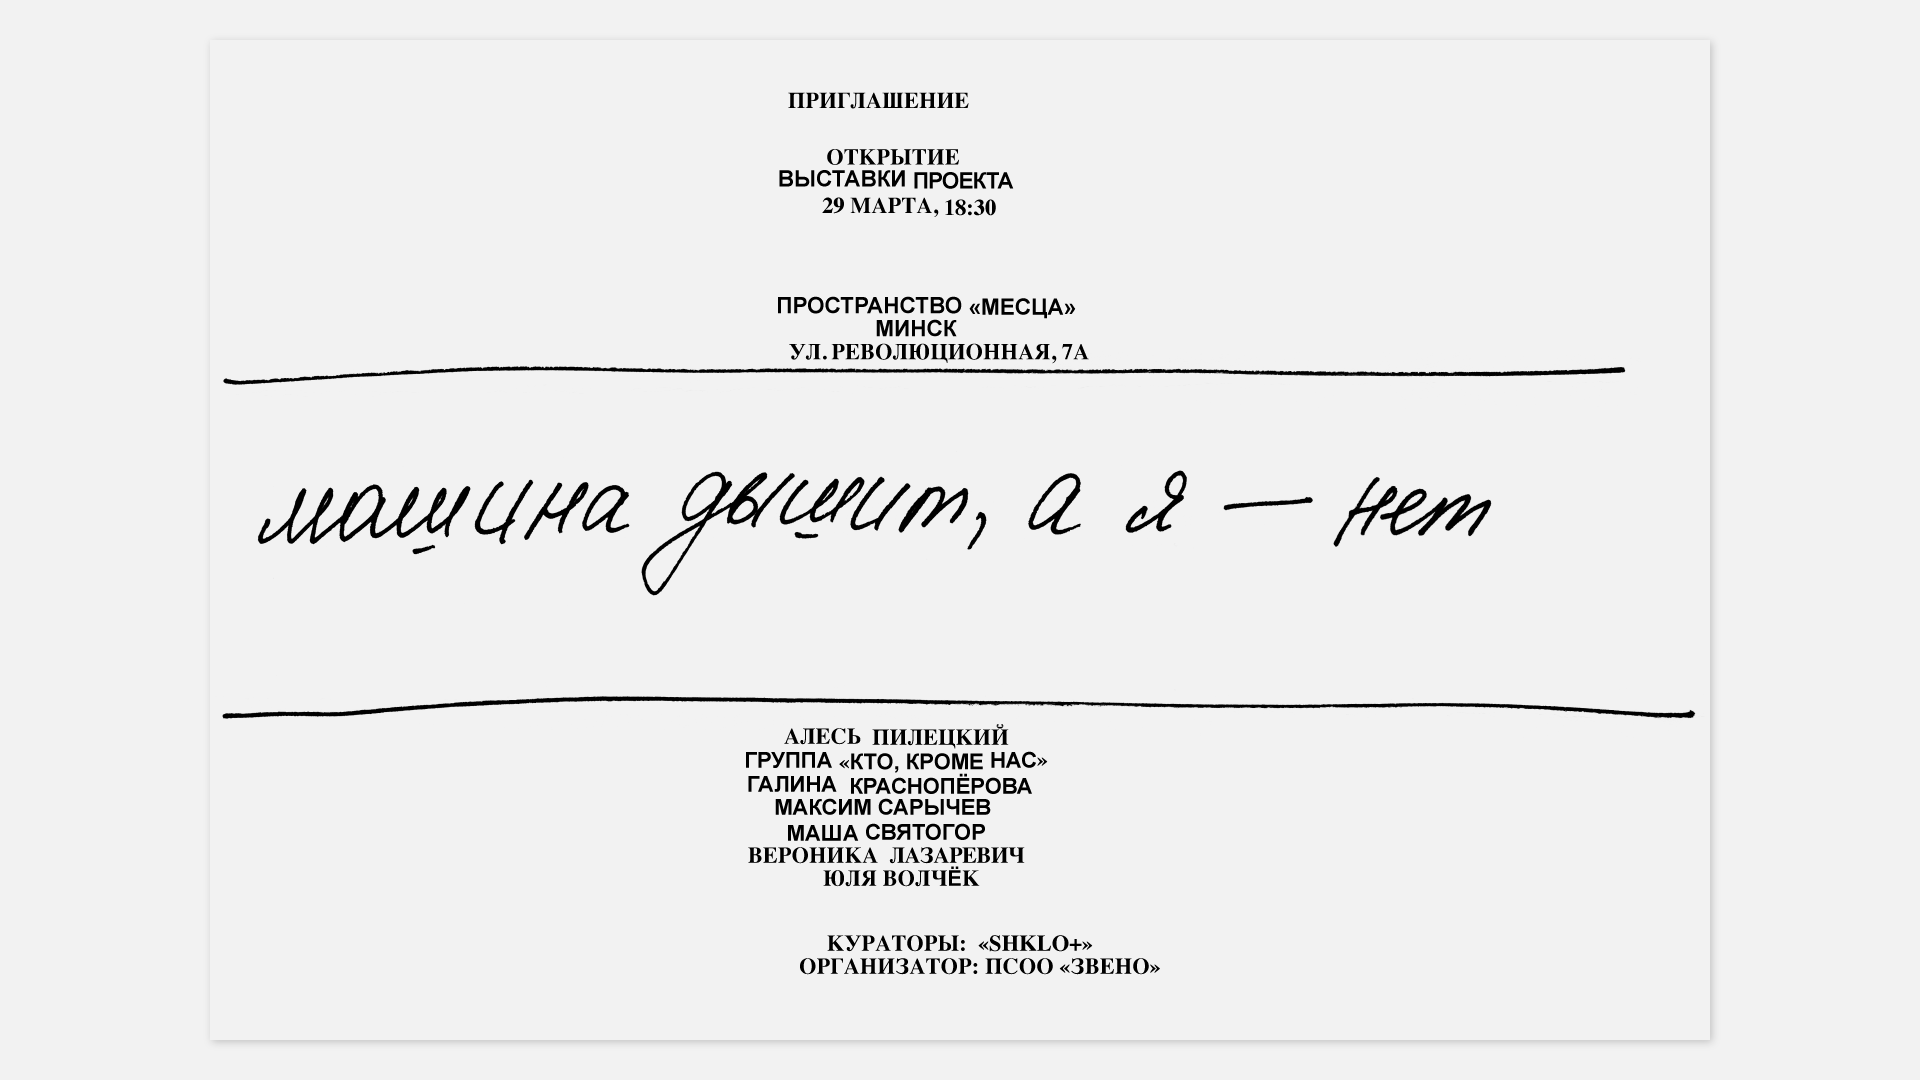 ПРИГЛАШЕНИЕ
ОТКРЫТИЕ
ВЫСТАВКИ ПРОЕКТА
29 МАРТА, 18:30
ПРОСТРАНСТВО «МЕСЦА»
МИНСК
УЛ. РЕВОЛЮЦИОННАЯ, 7А
машина дышит, а я — нет
АЛЕСЬ ПИЛЕЦКИЙ
ГРУППА «КТО, КРОМЕ НАС»
ГАЛИНА КРАСНОПЁРОВА
МАКСИМ САРЫЧЕВ
МАША СВЯТОГОР
ВЕРОНИКА ЛАЗАРЕВИЧ
ЮЛЯ ВОЛЧЁК
КУРАТОРЫ: «SHKLO+»
ОРГАНИЗАТОР: ПСОО «ЗВЕНО»